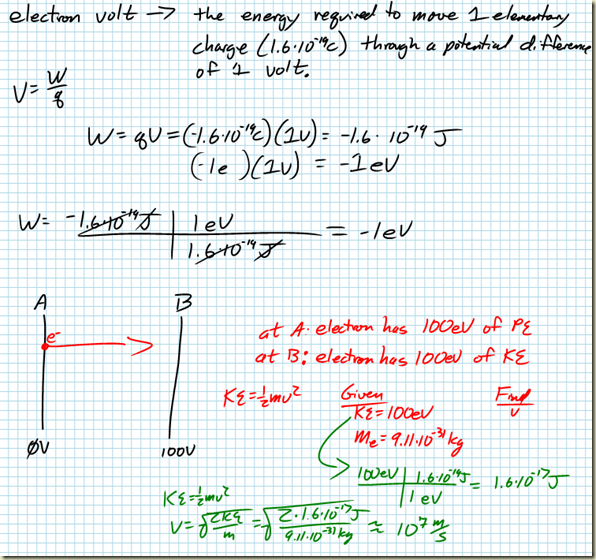 electron volt → the energy required to move 1 elementary
charge (1.6·10⁻¹⁹C) through a potential difference
of 1 volt.
V = W/q
W = qV = (-1.6·10⁻¹⁹C)(1V) = -1.6·10⁻¹⁹ J
(-1e)(1V) = -1eV
W = -1.6·10⁻¹⁹ J | 1eV / 1.6·10⁻¹⁹ J = -1eV
A B
e⁻
at A: electron has 100eV of PE
at B: electron has 100eV of KE
KE = ½mv² Given Find
KE = 100eV v
mₑ = 9.11·10⁻³¹ kg
0V 100V
100eV | 1.6·10⁻¹⁹J / 1 eV = 1.6·10⁻¹⁷ J
KE = ½mv²
v = √(2KE/m) = √(2·1.6·10⁻¹⁷J / 9.11·10⁻³¹ kg) ≈ 10⁷ m/s